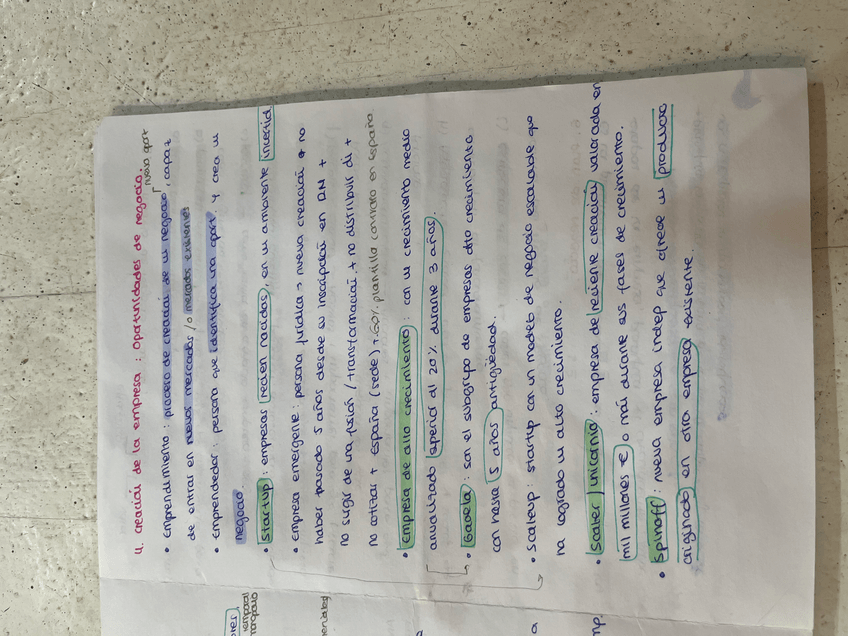 4. Creación de la empresa: Oportunidades de negocio.
nueva oport
• Emprendimiento: proceso de creación de un negocio, capaz
de entrar en nuevos mercados /o mercados existentes
• Emprendedor: persona que identifica una oport y crea un
negocio.
• Startup: empresas recien nacidas, en un ambiente incertid.
• Empresa emergente: persona jurídica → nueva creación o no
haber pasado 5 años desde su inscripción en RN +
no surgir de una fusión / transformación + no distribuir di +
no cotizar + España (sede) + 60% plantilla contrato en España
• Empresa de alto crecimiento: con un crecimiento medio
anualizado superior al 20% durante 3 años.
• Gacela: son el subgrupo de empresas alto crecimiento
con hasta 5 años antigüedad.
• Scaleup: startup con un modelo de negocio escalable que
ha logrado un alto crecimiento.
• Scaler / unicornio: empresa de reciente creación valorada en
1mil millones € o mas durante sus fases de crecimiento.
• Spinoff: nueva empresa indep que ofrece un producto
originado en otra empresa existente.
temporal